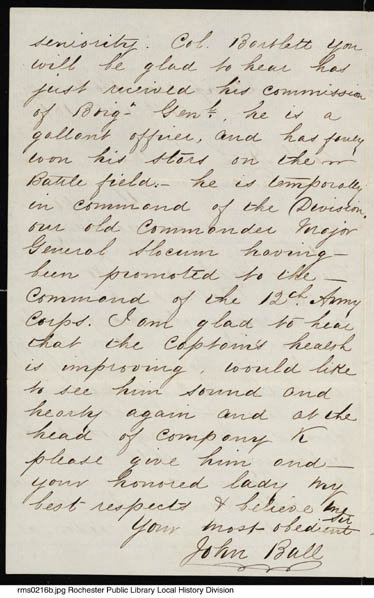 seniority. Col. Bartlett you
will be glad to hear has
just received his commission
of Brigr Genl, he is a
gallant officer, and has fairly
won his stars on the
Battle field, - he is temporally
in command of the Division,
our old Commander Major
General Slocum having -
been promoted to the -
Command of the 12th Army
Corps. I am glad to hear
that the Captain's health
is improving, would like
to see him sound and
hearty again and at the
head of Company K
please give him and -
your honored lady my
best respects & believe me
Sir
Your most obedient
John Ball
rms0216b.jpg Rochester Public Library Local History Division